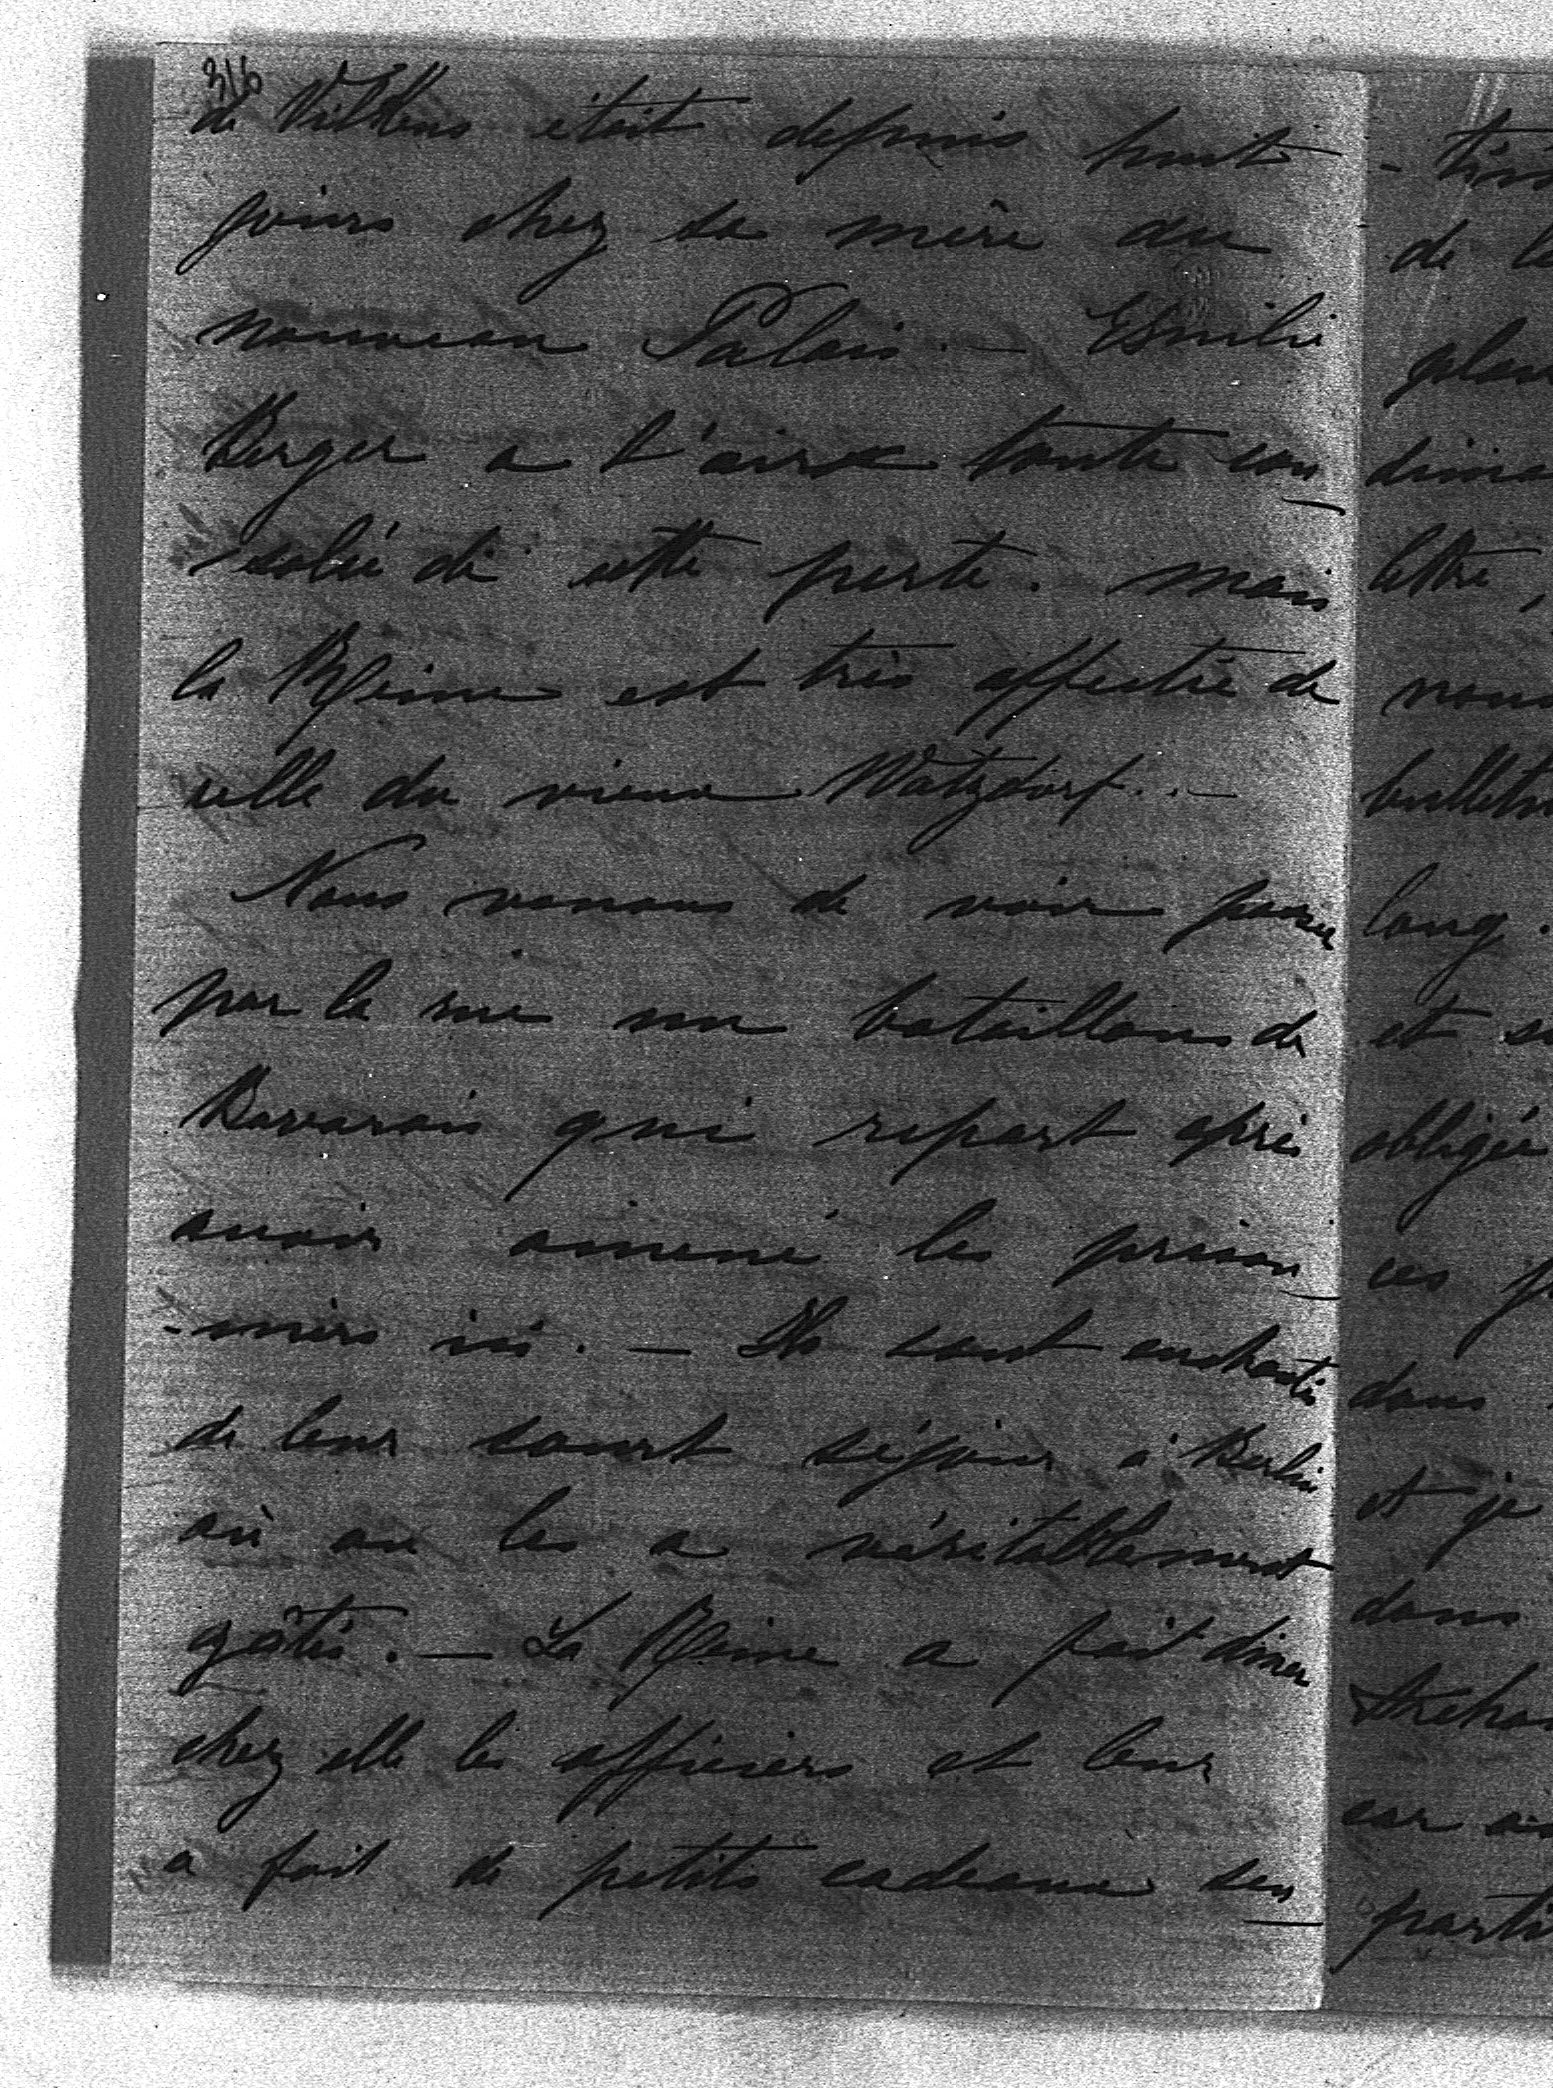 316
de Vilkens était depuis huit
jours chez sa mère au
nouveau Palais. — Emilie
Berger a l'air toute con
solée de cette perte. mais
la Reine est très affectée de
celle du vieux Watzdorf.. —
Nous venons de voir passer
par la rue un bataillons de
Bavarois qui repart après
avoir amené les prison
-niers ici. — Ils sont enchantés
de leur court séjour à Berlin
où on les a véritablement
gâtés. — La Reine a fait diner
chez elle les officiers et leur
a fait de petits cadeaux sen
de
lettre,
long.
et
obligée
ces
dans
et je
dans
car